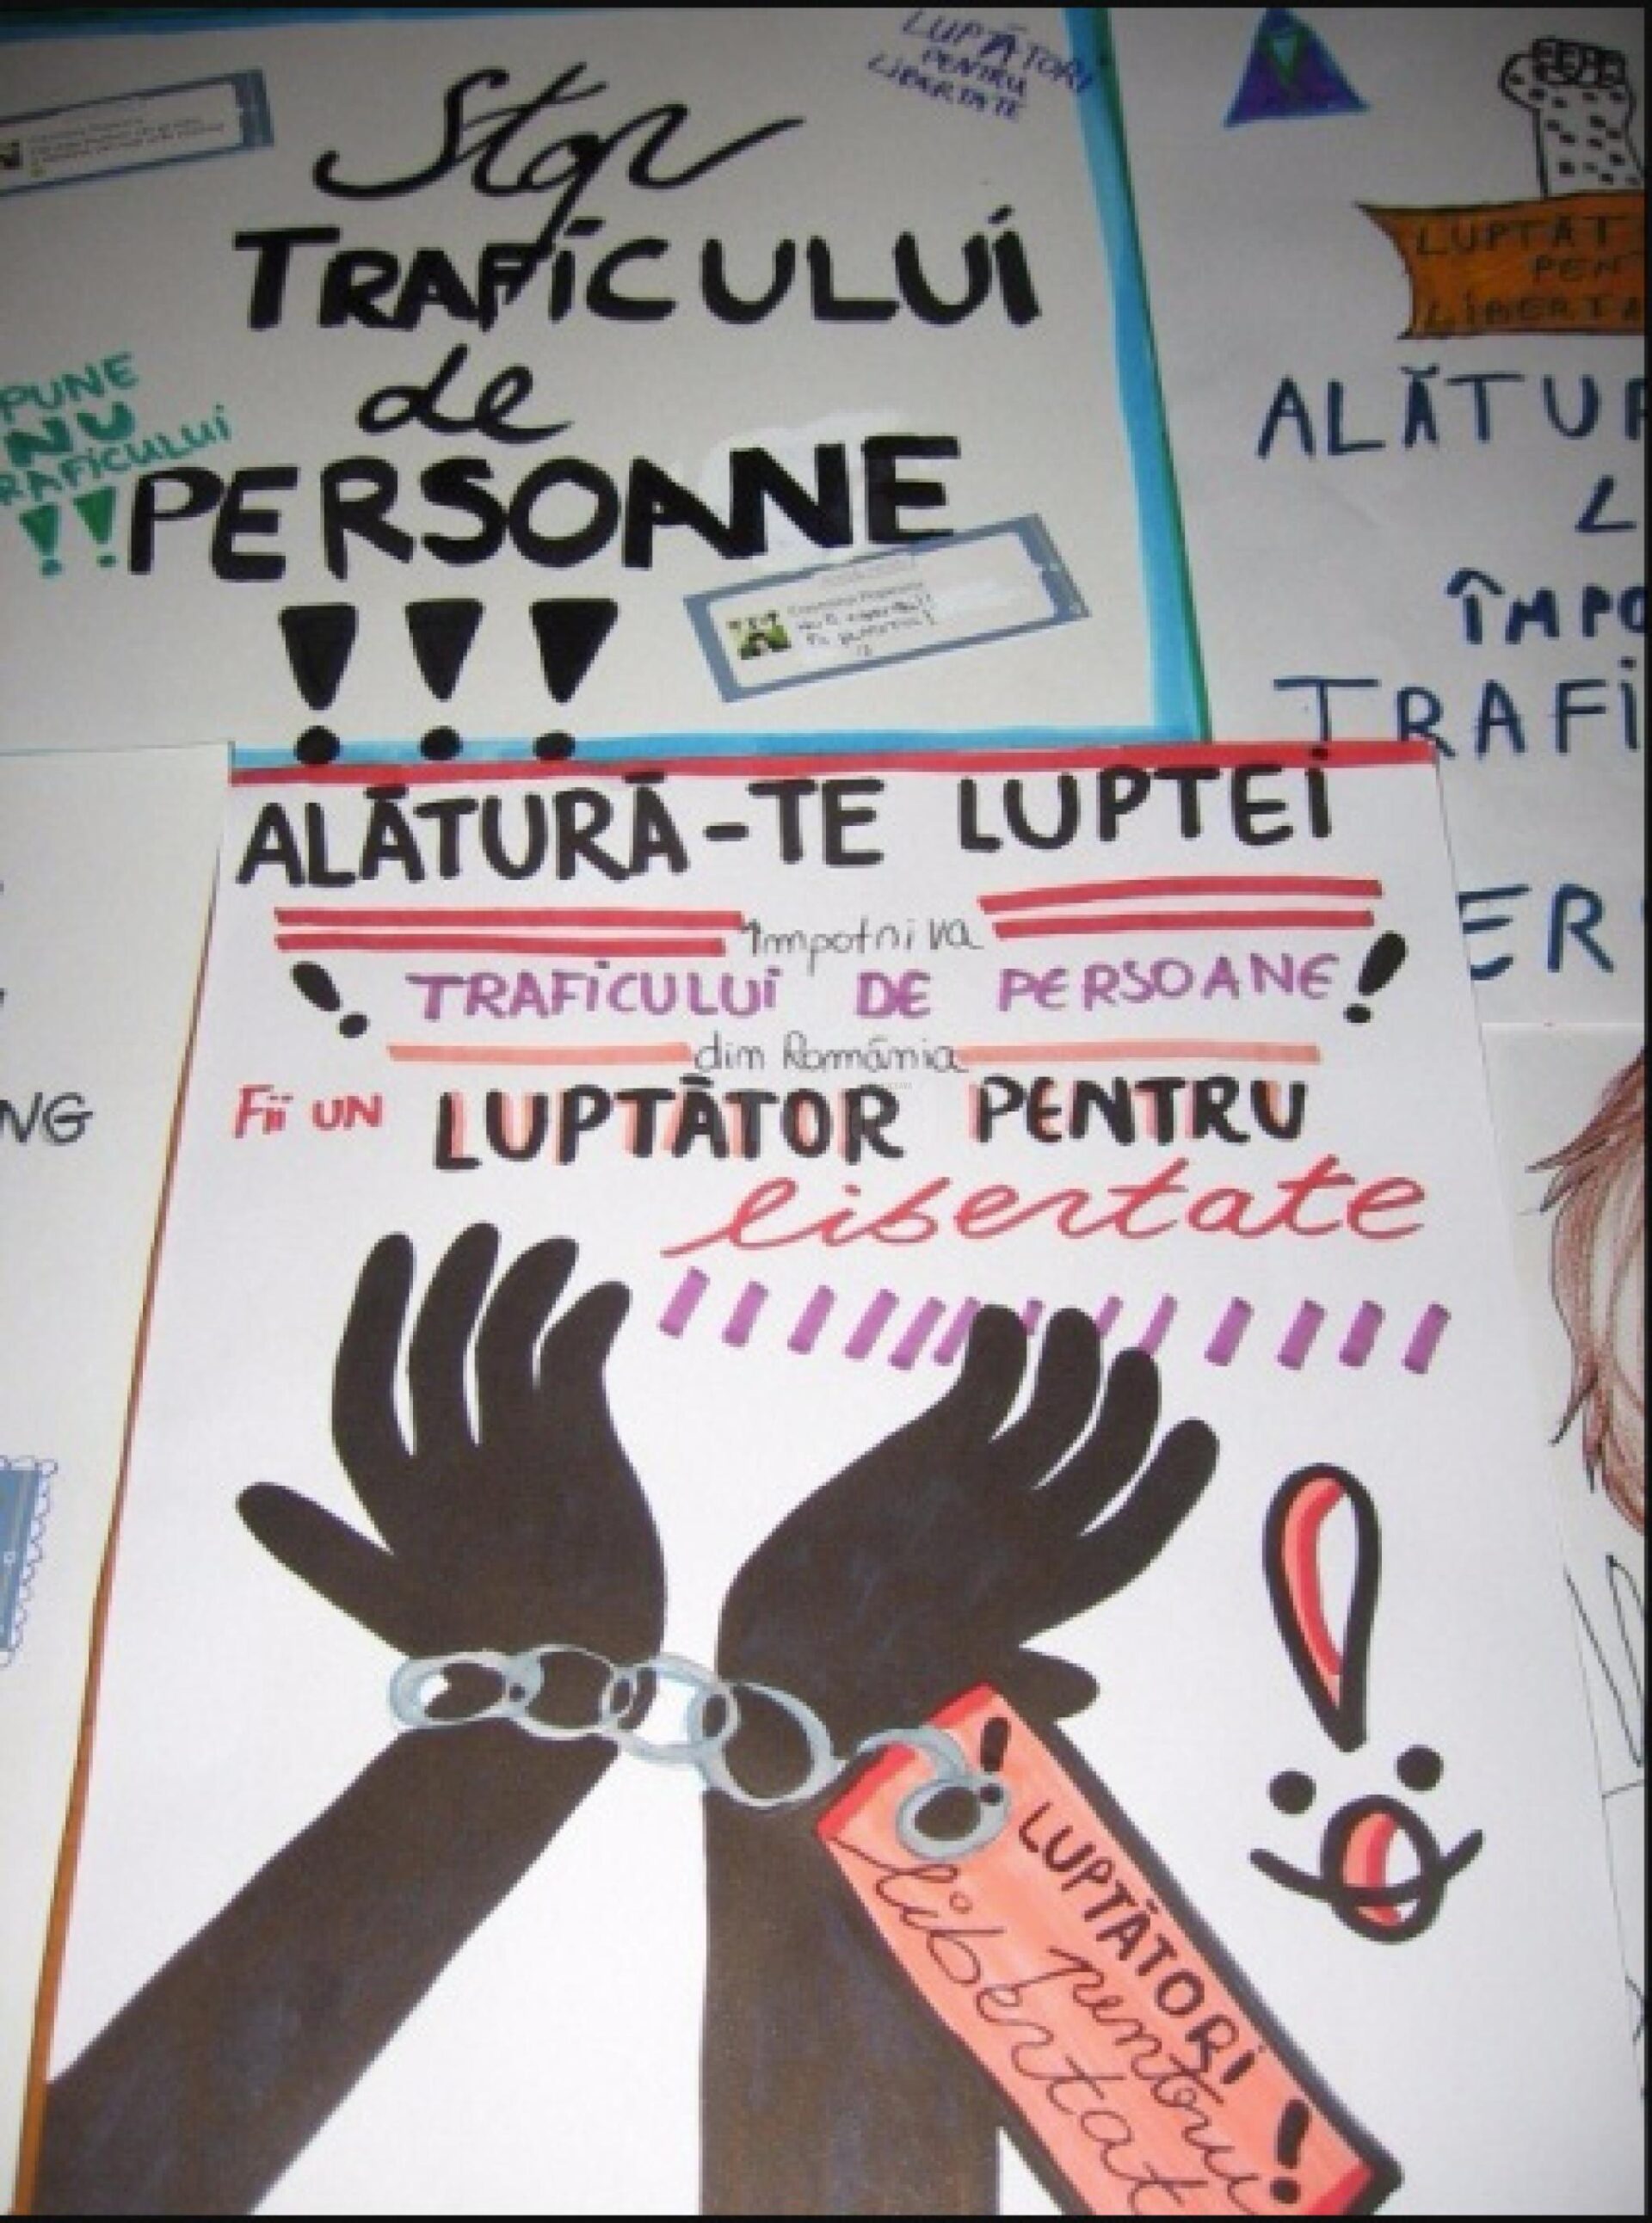 LUPTĂTORI
PENTRU
LIBERTATE
Stop
TRAFICULUI
de
PERSOANE
!!!
PUNE
NU
RAFICULUI
!!
LUPTĂT
PEN
LIBERTA
ALĂTUR
L
ÎMPO
TRAFI
ER
ALĂTURĂ-TE LUPTEI
împotriva
! TRAFICULUI DE PERSOANE !
din România
Fii UN LUPTĂTOR PENTRU
libertate
NG
! LUPTĂTORI
pentru
libertat
!